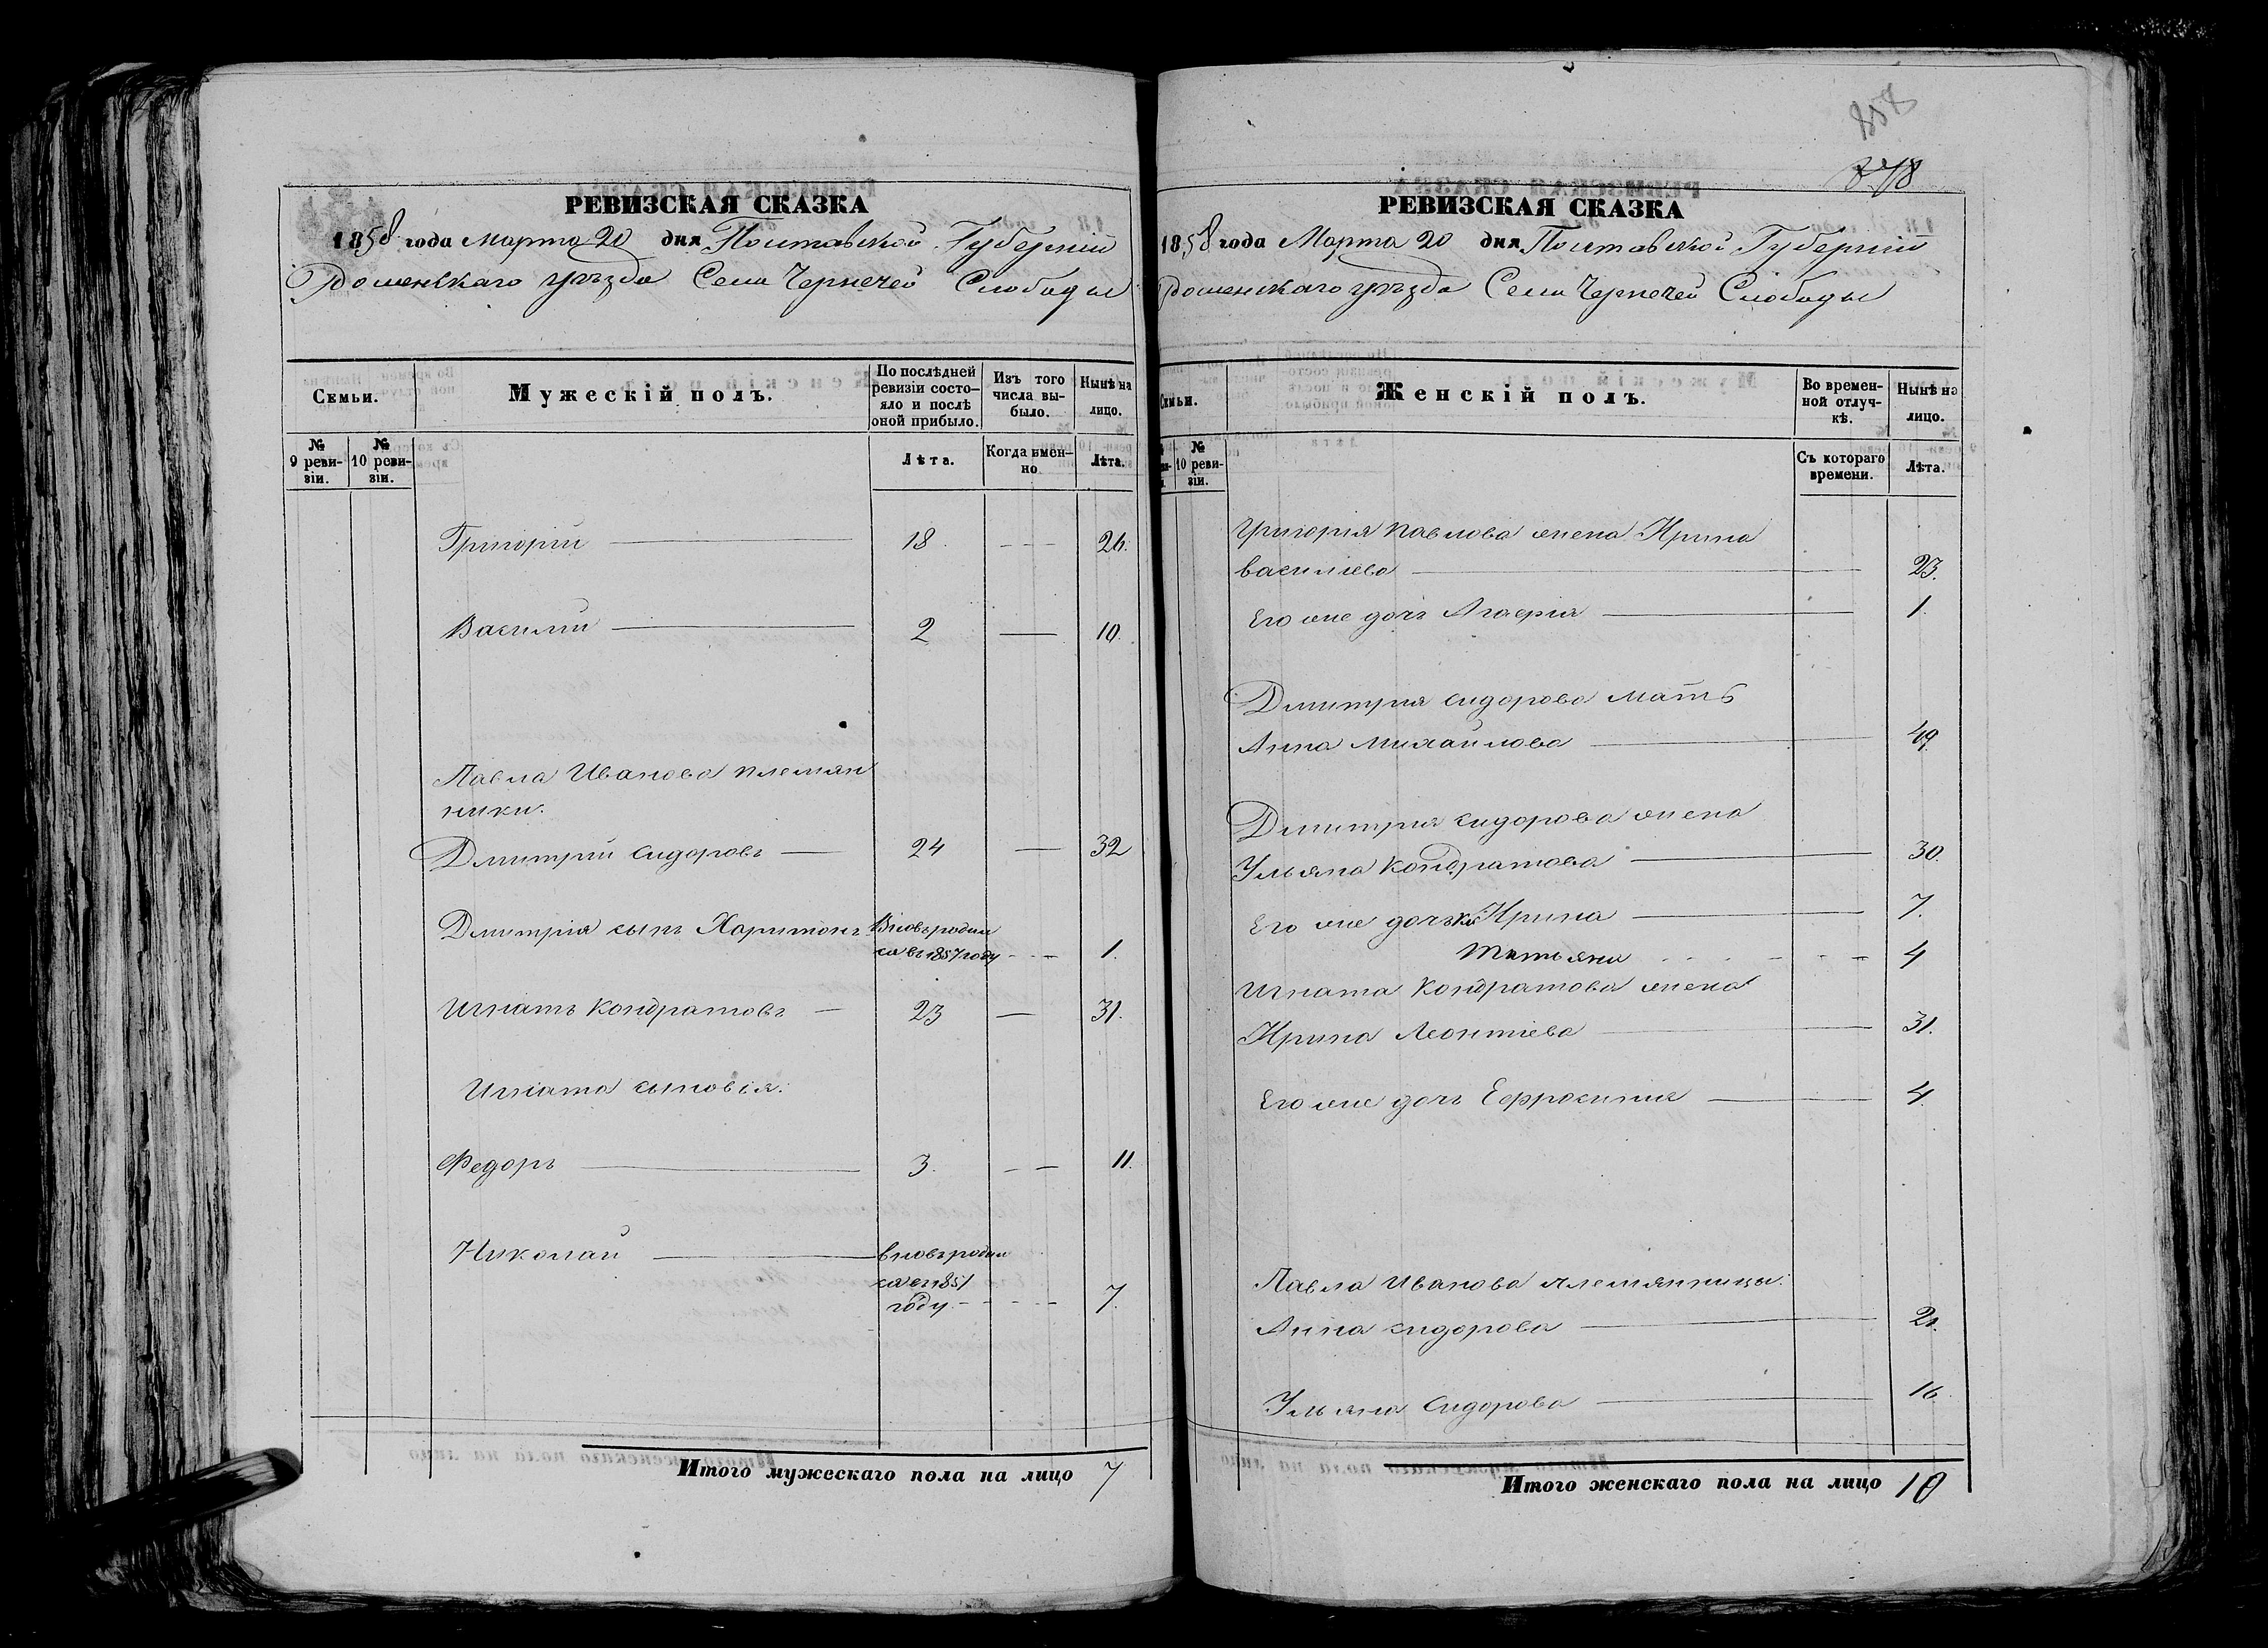 РЕВИЗСКАЯ СКАЗКА
1858 года Марта 20 дня Полтавской Губерніи
Роменскаго уѣзда Села Чернечей Слободы
Семьи.
Мужескій полъ.
По послѣдней ревизіи состояло и послѣ оной прибыло.
Изъ того числа выбыло.
Нынѣ на лицо.
№ 9 ревизіи.
№ 10 ревизіи.
Лѣта.
Когда именно
Лѣта.
Григорій 18 26.
Василий 2 10.
Павла Иванова племян
ники.
Дмитрий Сидоровъ 24 32
Дмитрія сынъ Харитонъ Вновь родил
ся въ 1857 году 1.
Игнатъ Кондратовъ 23 31.
Игната сыновія:
Федоръ 3. 11.
Николай вновь родил
ся въ 1851
году 7.
Итого мужескаго пола на лицо 7
858
878
РЕВИЗСКАЯ СКАЗКА
1858 года Марта 20 дня Полтавской Губерніи
Роменскаго уѣзда Села Чернечей Слободы
Семьи.
Женскій полъ.
Во временной отлучкѣ.
Нынѣ на лицо.
№ 10 ревизіи.
Съ котораго времени.
Лѣта.
Григорія Павлова жена Ирина
Василиева 23.
Его же дочъ Агафія 1.
Дмитрия Сидорова мать
Анна Михайлова 49
Дмитрия Сидорова жена
Ульяна Кондратова 30.
Его же дочъки Ирина 7.
Татьяна 4
Игната Кондратова жена
Ирина Леонтіева 31.
Его же дочъ Ефросиния 4.
Павла Иванова племянницы:
Анна Сидорова 21.
Ульяна Сидорова 16.
Итого женскаго пола на лицо 10